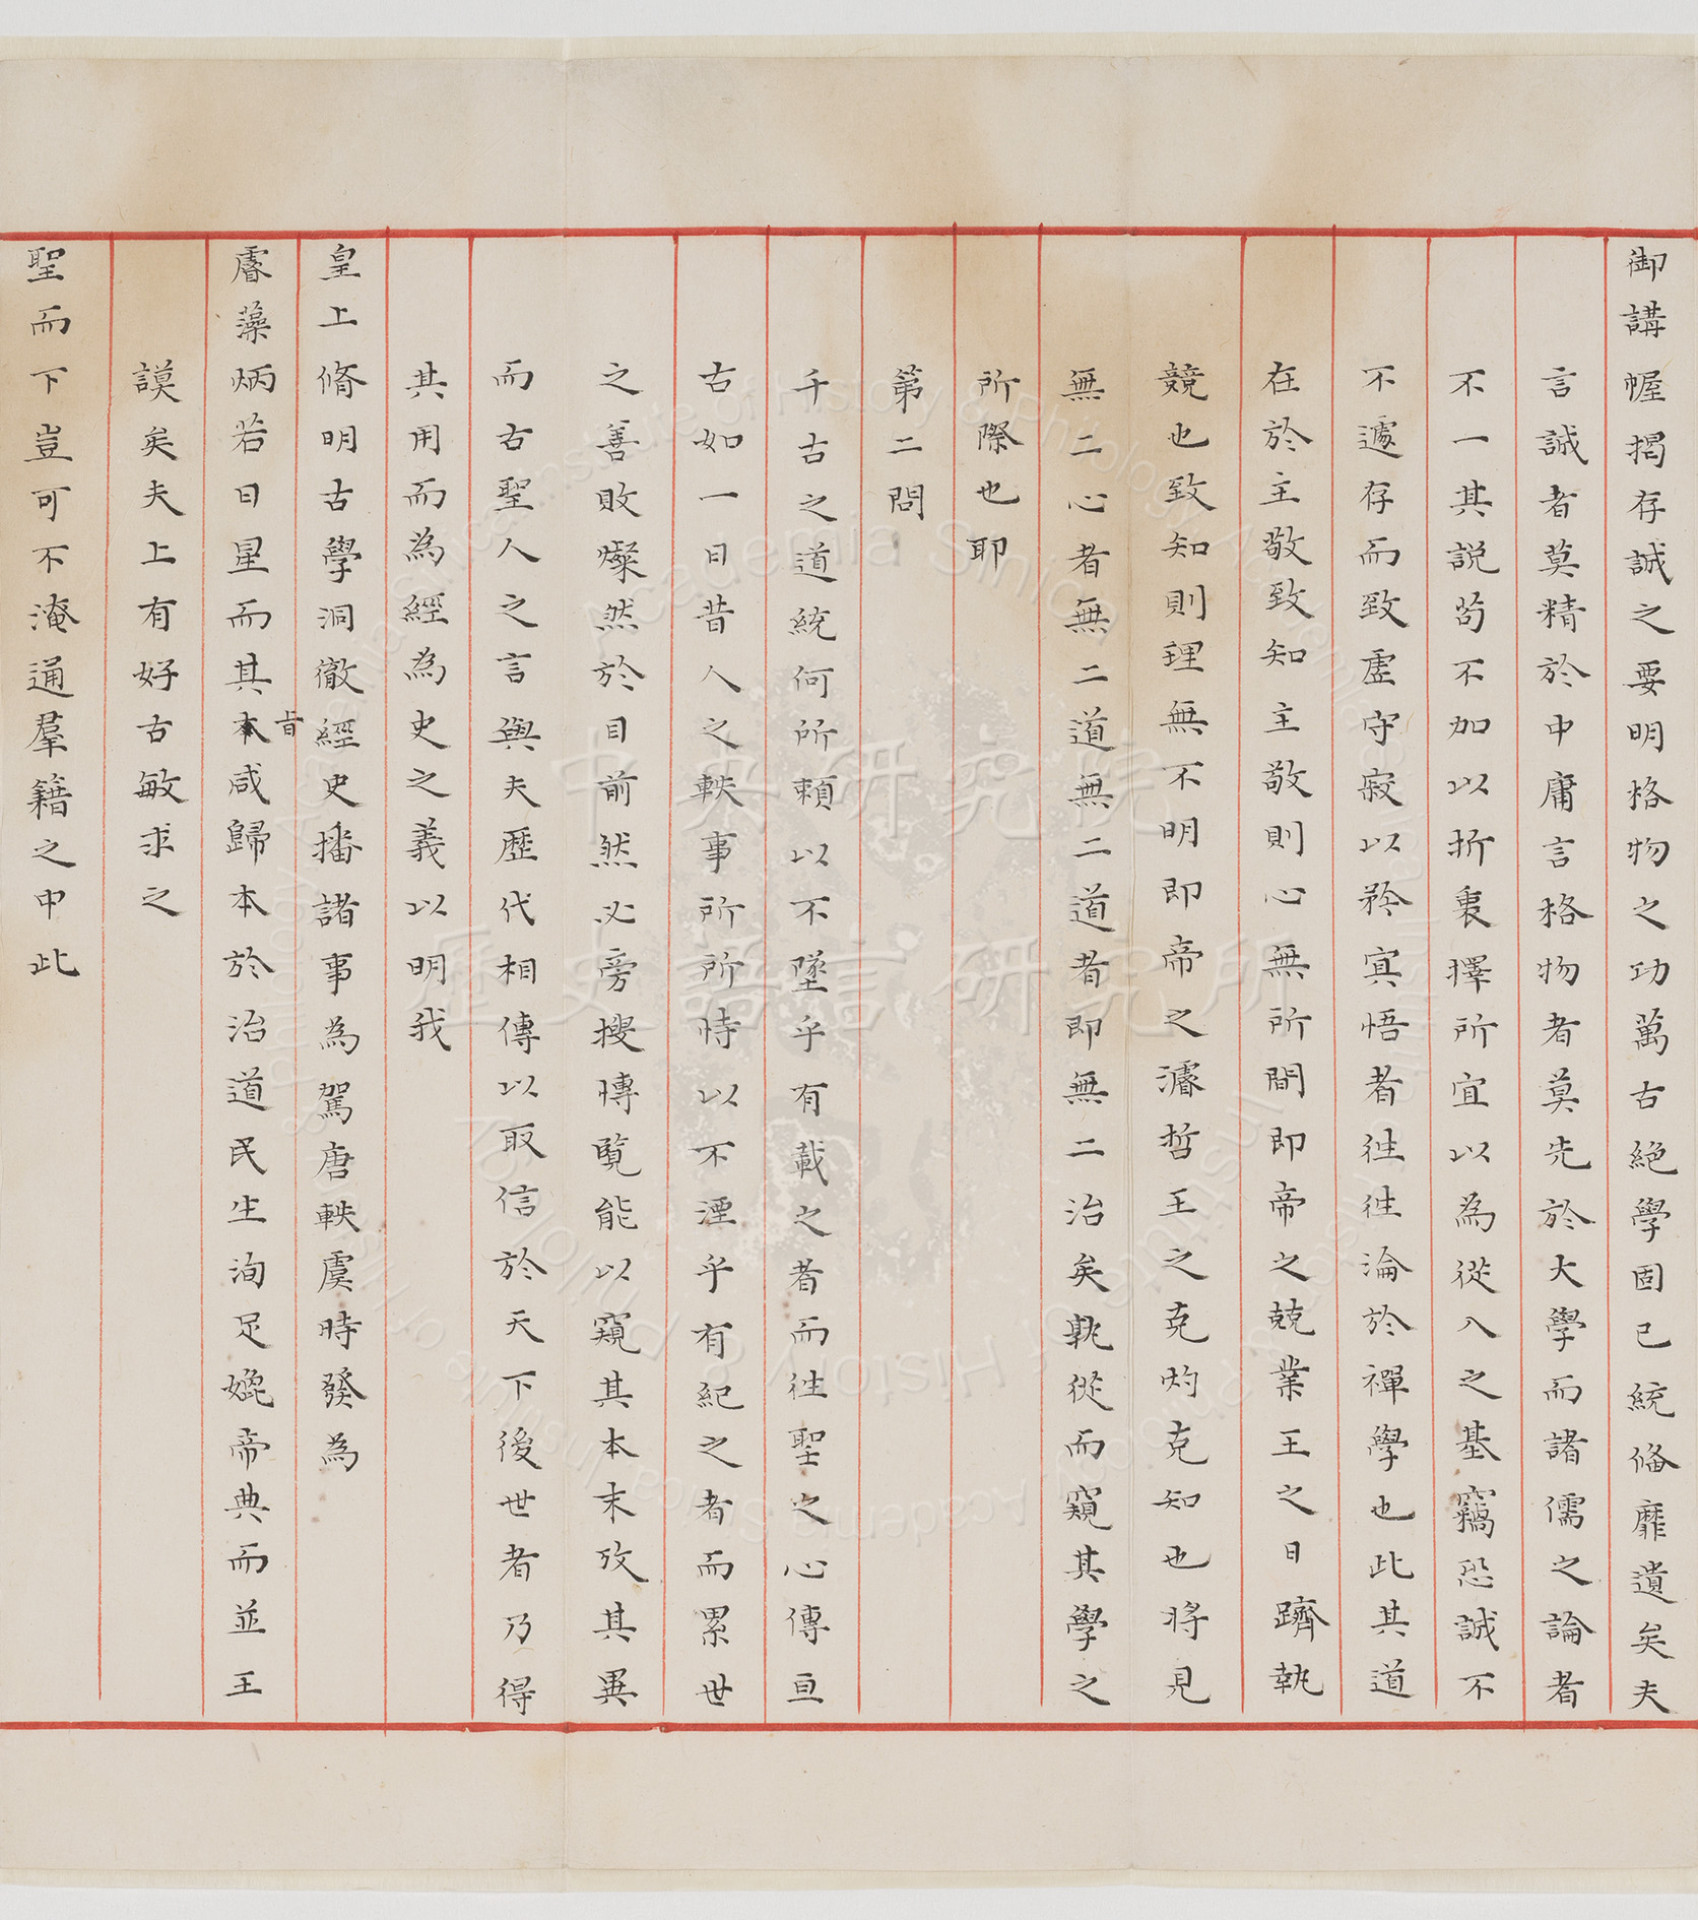 御講幄揭存誠之要明格物之功萬古絕學固已統備靡遺矣夫
言誠者莫精於中庸言格物者莫先於大學而諸儒之論者
不一其説苟不加以折衷擇所宜以為從入之基竊恐誠不
不遽存而致虛守寂以矜冥悟者徃徃淪於禪學也此其道
在於主敬致知主敬則心無所間即帝之兢業王之日躋執
競也致知則理無不明即帝之濬哲王之克灼克知也將見
無二心者無二道無二道者即無二治矣孰從而窺其學之
所際也耶
第二問
千古之道統何所頼以不墜乎有載之者而徃聖之心傳亘
古如一日昔人之軼事所所恃以不湮乎有紀之者而累世
之善敗燦然於目前然必旁搜博覧能以窺其本末攷其異
而古聖人之言與夫歴代相傳以取信於天下後世者乃得
其用而為經為史之義以明我
皇上脩明古學洞徹經史播諸事為駕唐軼虞時發為
睿藻炳若日星而其本旨咸歸本於治道民生洵足媲帝典而並王
謨矣夫上有好古敏求之
聖而下豈可不淹通羣籍之中此
中央研究院
歷史語言研究所